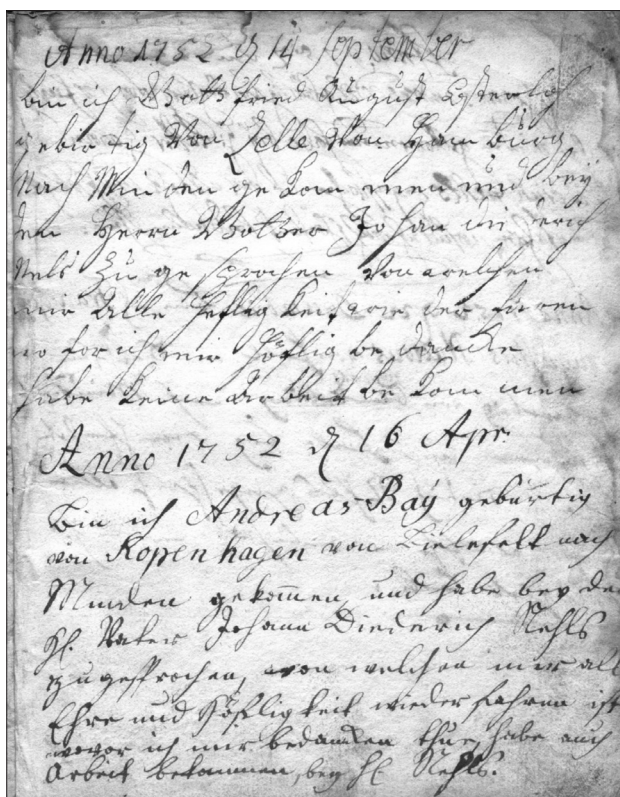 Anno 1752 d 14 September
bin ich Gottfried August
gebirtig Von Zelle Von Hamburg
Nach Minden ge kom men und bey
den Herrn Vatter Johan die derich
Nels Zu ge sprochen Von welchen
mir Alle Hefligkeit wie der faren
wo for ich mir höflig be dancke
habe Keine Arbeit be kom men
Anno 1752 d 16 Apr.
Bin ich Andreas Bay gebürtig
von Kopenhagen von Bielefelt nach
Minden gekommen und habe bey den
H. Vater Johann Diederich Nehls
zugesprochen, von welchen mir all
Ehre und Höfligkeit wiederfahren ist
wovor ich mir bedancken thue, habe auch
Arbeit bekommen, bey H. Nehls.